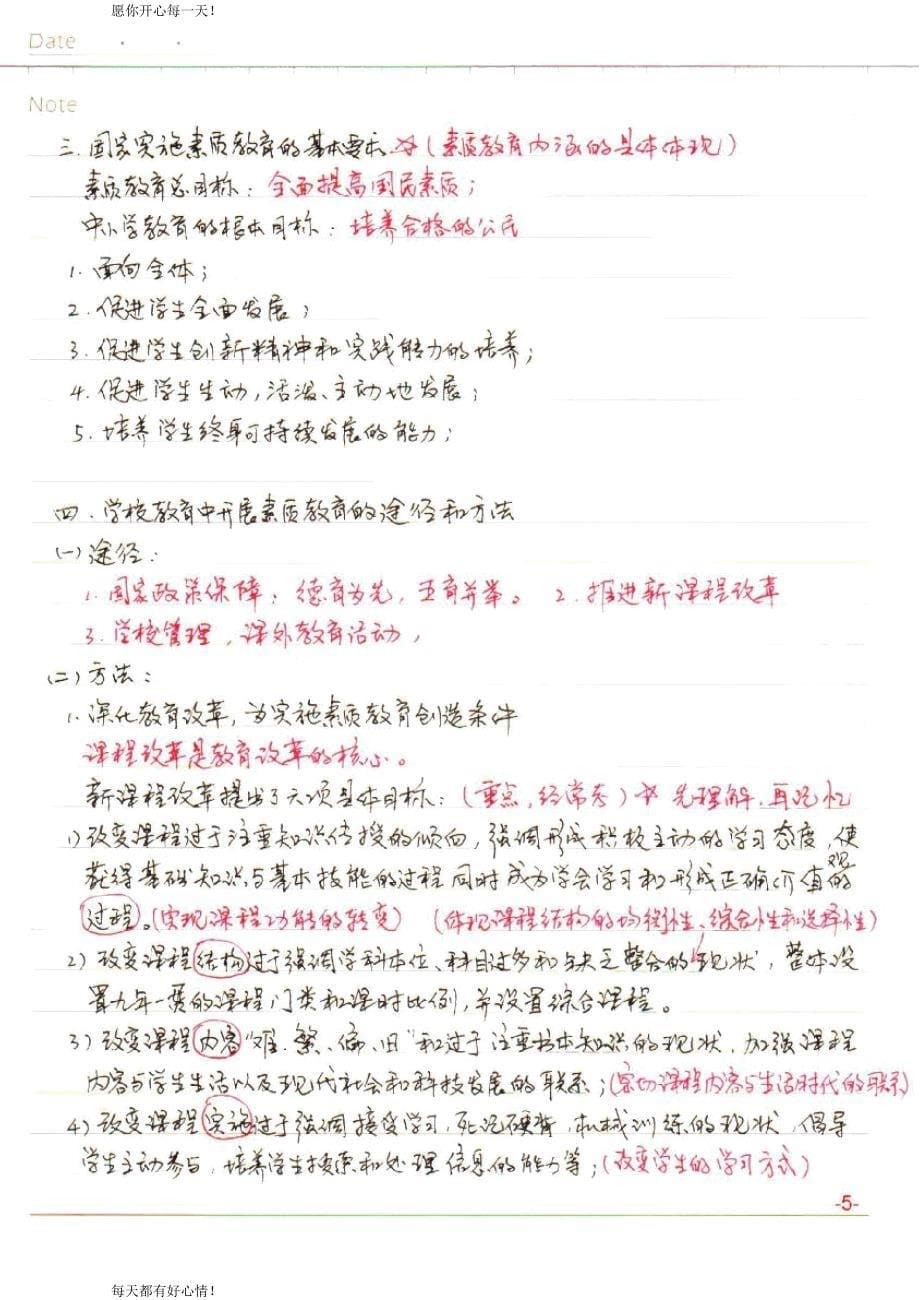 愿你开心每一天！
Date
Note
三.国家实施素质教育的基本要求☆(素质教育内涵的具体体现)
素质教育总目标：全面提高国民素质；
中小学教育的根本目标：培养合格的公民
1.面向全体；
2.促进学生全面发展；
3.促进学生创新精神和实践能力的培养；
4.促进学生生动,活泼、主动地发展；
5.培养学生终身可持续发展的能力；
四.学校教育中开展素质教育的途径和方法
(一)途径：
1.国家政策保障：德育为先,五育并举。 2.推进新课程改革
3.学校管理,课外教育活动,
(二)方法：
1.深化教育改革,为实施素质教育创造条件
课程改革是教育改革的核心。
新课程改革提出了六项具体目标：(重点,经常考)☆先理解,再记忆
1)改变课程过于注重知识传授的倾向,强调形成积极主动的学习态度,使
获得基础知识与基本技能的过程同时成为学会学习和形成正确价值观的
过程。(实现课程功能的转变) (体现课程结构的均衡性、综合性和选择性)
2)改变课程结构过于强调学科本位、科目过多和缺乏整合的现状,整体设
置九年一贯的课程门类和课时比例,并设置综合课程。
3)改变课程内容"难.繁、偏、旧"和过于注重书本知识的现状,加强课程
内容与学生生活以及现代社会和科技发展的联系；(密切课程内容与生活时代的联系)
4)改变课程实施过于强调接受学习,死记硬背,机械训练的现状,倡导
学生主动参与,培养学生搜索和处理信息的能力等；(改变学生的学习方式)
-5-
每天都有好心情！